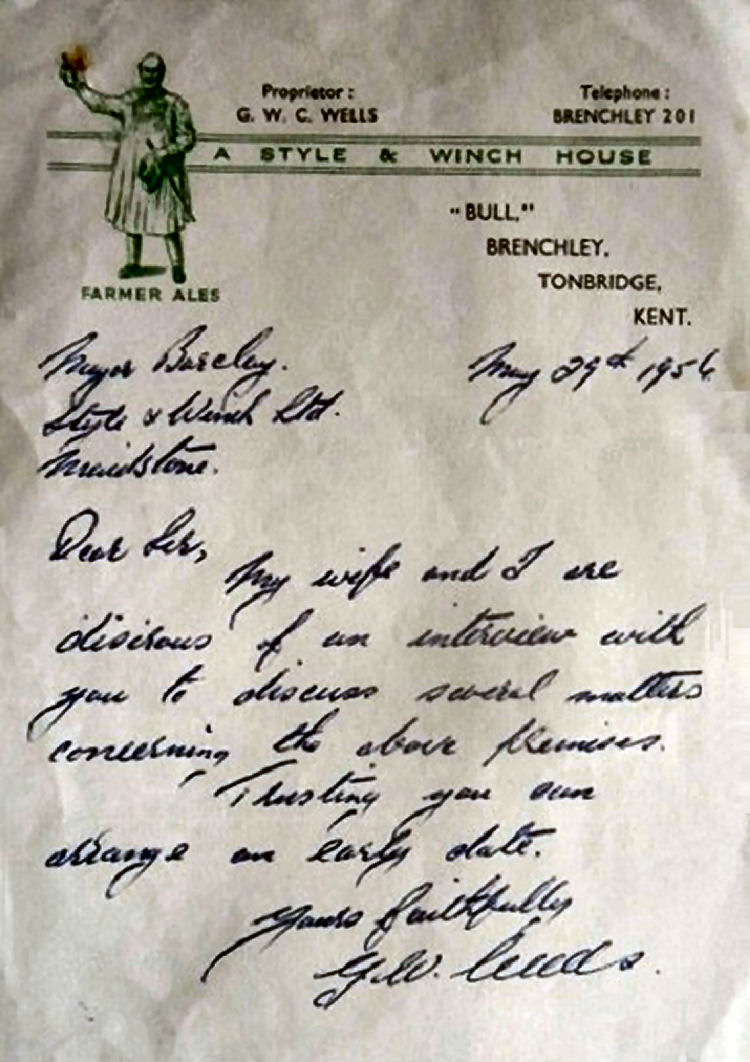 Proprietor :
G. W. C. WELLS
Telephone :
BRENCHLEY 201
A STYLE & WINCH HOUSE
FARMER ALES
"BULL,"
BRENCHLEY,
TONBRIDGE,
KENT.
May 29th 1956
Major Barclay.
Style & Winch Ltd.
Maidstone.
Dear Sir,
My wife and I are
disirous of an interview with
you to discuss several matters
concerning the above premises.
Trusting you can
arrange an early date.
Yours faithfully
G.W.